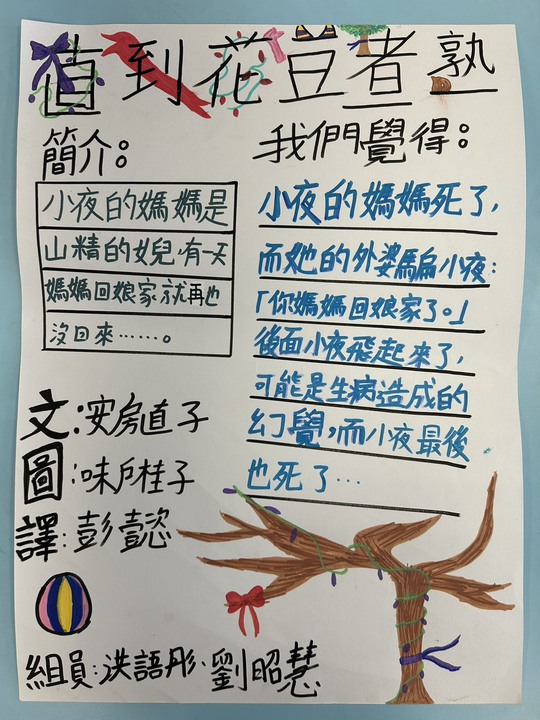 直到花豆煮熟
簡介：
小夜的媽媽是
山精的女兒，有一天
媽媽回娘家就再也
沒回來……。
文：安房直子
圖：味戶桂子
譯：彭懿
組員：洪語彤、劉昭慧
我們覺得：
小夜的媽媽死了，
而她的外婆騙小夜：
「你媽媽回娘家了。」
後面小夜飛起來了，
可能是生病造成的
幻覺，而小夜最後
也死了…